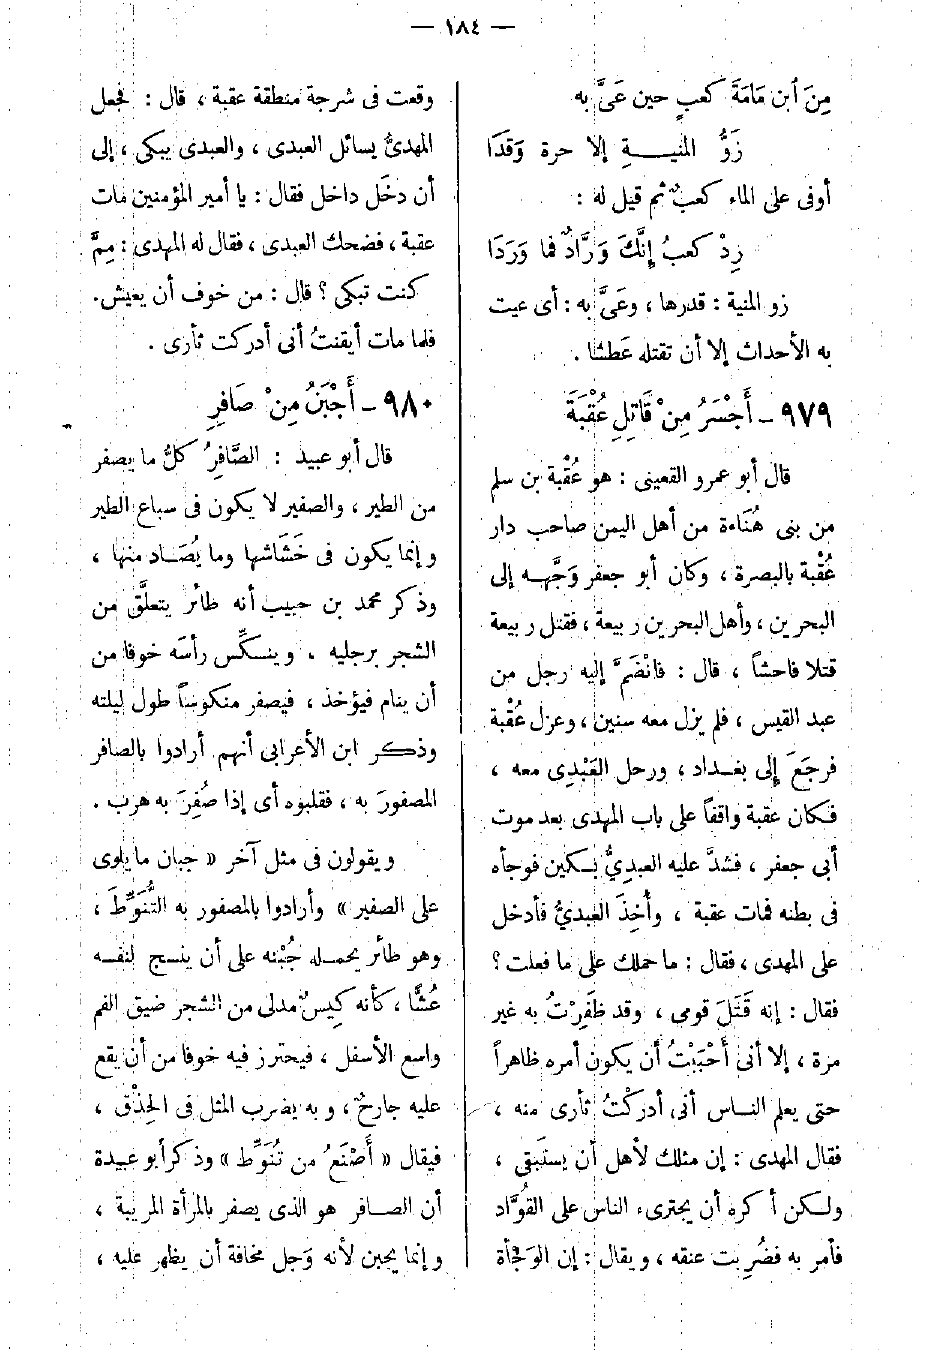 — ١٨٤ —
مِنَ ٱبن مَامَةَ كعبٍ حين عَىَّ به
زَوُّ المنيـــــةِ إلا حرة وَقَدَا
أوفى على الماء كعبٌ ثم قيل له :
رِدْ كعبُ إنَّكَ وَرَّادٌ فما وَرَدَا
زو المنية : قدرها ، وعَىَّ به : أى عيت
به الأحداث إلا أن تقتله عَطشا .
٩٧٩ ــ أَجْسَرُ مِنْ قَاتِلِ عُقْبَةَ
قال أبو عمرو القعينى : هو عُقْبة بن سلم
من بنى هُنَاءة من أهل اليمن صاحب دار
عُقْبة بالبصرة ، وكان أبو جعفر وَجَّهه إلى
البحرين ، وأهل البحرين ربيعة ، فقتل ربيعة
قتلا فاحشاً ، قال : فانْضَمَّ إليه رجل من
عبد القيس ، فلم يزل معه سنين ، وعزل عُقْبة
فرجَعَ إلى بغـداد ، ورحل العَبْدِى معه ،
فكان عقبة واقفاً على باب المهدى بعد موت
أبى جعفر ، فشدَّ عليه العبدِىُّ بسكين فوجأه
فى بطنه فمات عقبة ، وأُخِذَ العبدىُّ فأدخل
على المهدى ، فقال : ما حملك على ما فعلت ؟
فقال : إنه قَتَلَ قومى ، وقد ظَفِرْتُ به غير
مرة ، إلا أنى أَحْبَبْتُ أن يكون أمره ظاهراً
حتى يعلم النـاس أنى أدركْتُ ثأرى منه ،
فقال المهدى : إن مثلك لأهل أن يستَبقى ،
ولـكن أكره أن يجترىء الناس على القُوَّاد
فأمر به فضُرِبت عنقه ، ويقال : إن الوَجْأة
وقعت فى شرجة منطقة عقبة ، قال : فجعل
المهدىُّ يسائل العبدى ، والعبدى يبكى ، إلى
أن دخَل داخل فقال : يا أمير المؤمنين مات
عقبة ، فضحك العبدى ، فقال له المهدى : مِمَّ
كنت تبكى ؟ قال : من خوف أن يعيش.
فلما مات أيقنتُ أنى أدركت ثأرى .
٩٨٠ ــ أَجْبَنُ مِنْ صَافِرِ
قال أبو عبيد : الصَّافِرُ كلُّ ما يصفر
من الطير ، والصفير لا يكون فى سباع الطير
وإنما يكون فى خَشَاشها وما يُصَـاد منها ،
وذكر محمد بن حبيب أنه طائر يتعلَّق من
الشجر برجليه ، وينـكِّس رأسَه خوفا من
أن ينام فيؤخذ ، فيصفر منكوساً طول ليلته
وذكـر ابن الأعرابى أنهم أرادوا بالصافر
المصفورَ به ، فقلبوه أى إذا صُفِرَ به هرب .
ويقولون فى مثل آخر « جبان ما يلوى
على الصفير » وأرادوا بالمصفور به التُّنَوِّطَ ،
وهو طائر يحمـله جُبْنه على أن ينسج لنفسـه
عُشًّا ، كأنه كِيسٌ مدلى من الشجر ضيق الفم
واسع الأسفل ، فيحترز فيه خوفا من أن يقع
عليه جارحٌ ، وبه يضرب المثل فى الحِذْق ،
فيقال « أَصْنَعُ من تُنَوِّط » وذكر أبو عبيدة
أن الصـافر هو الذى يصفر بالمرأة المريبة ،
وإنما يجبن لأنه وَجل مخافة أن يظهر عليه ،